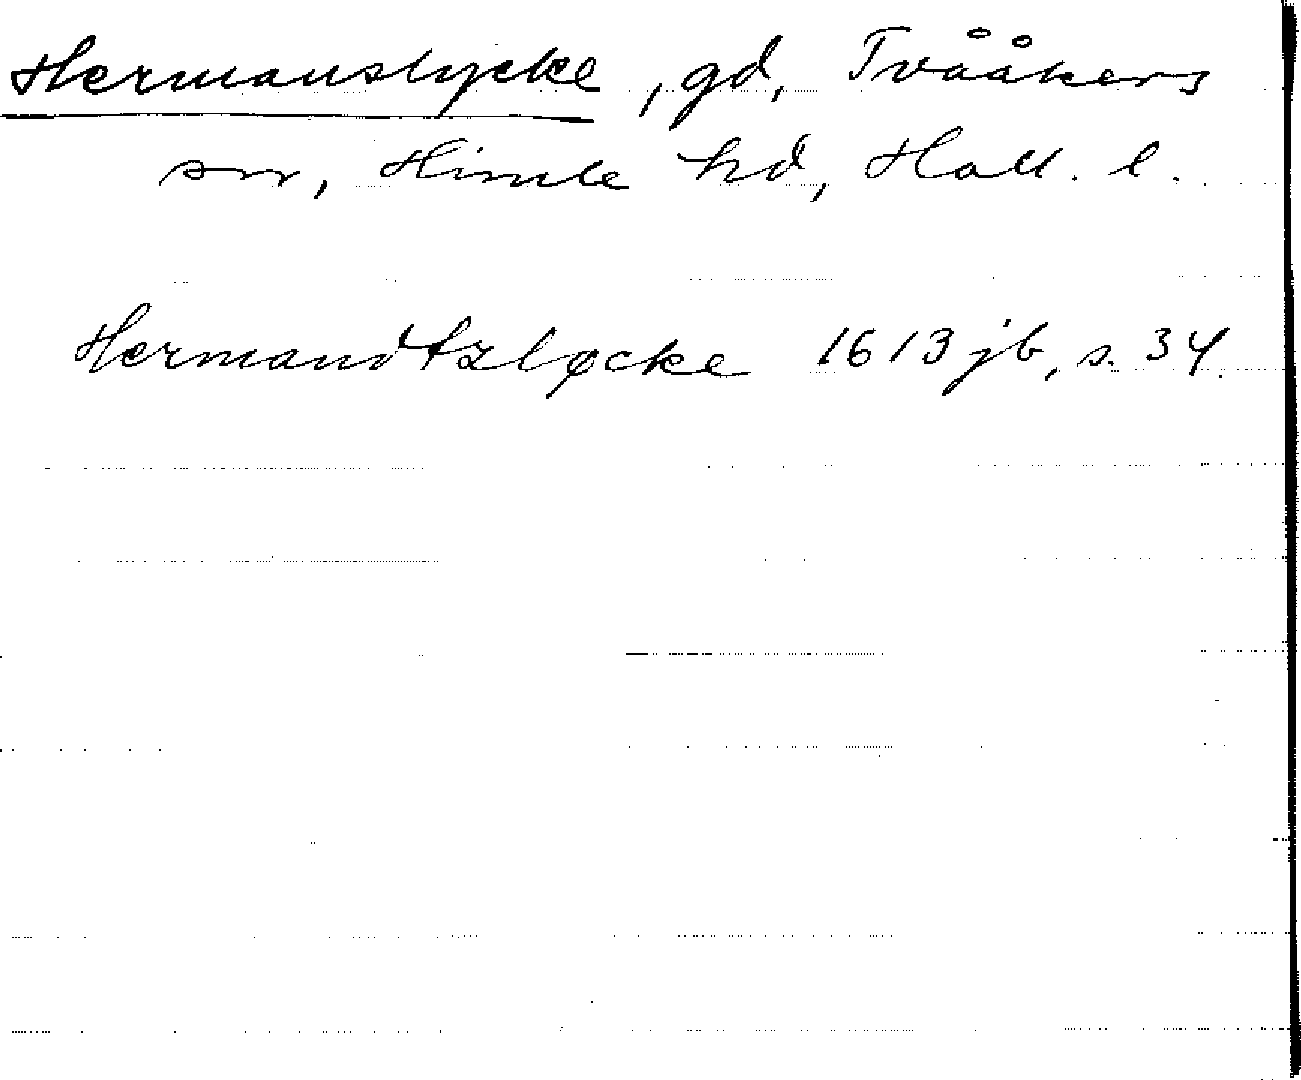 Hermanslycke, gd, Tvååkers
sn, Himle hd, Hall. l.
Hermandtzløcke 1613 jb, s. 34.